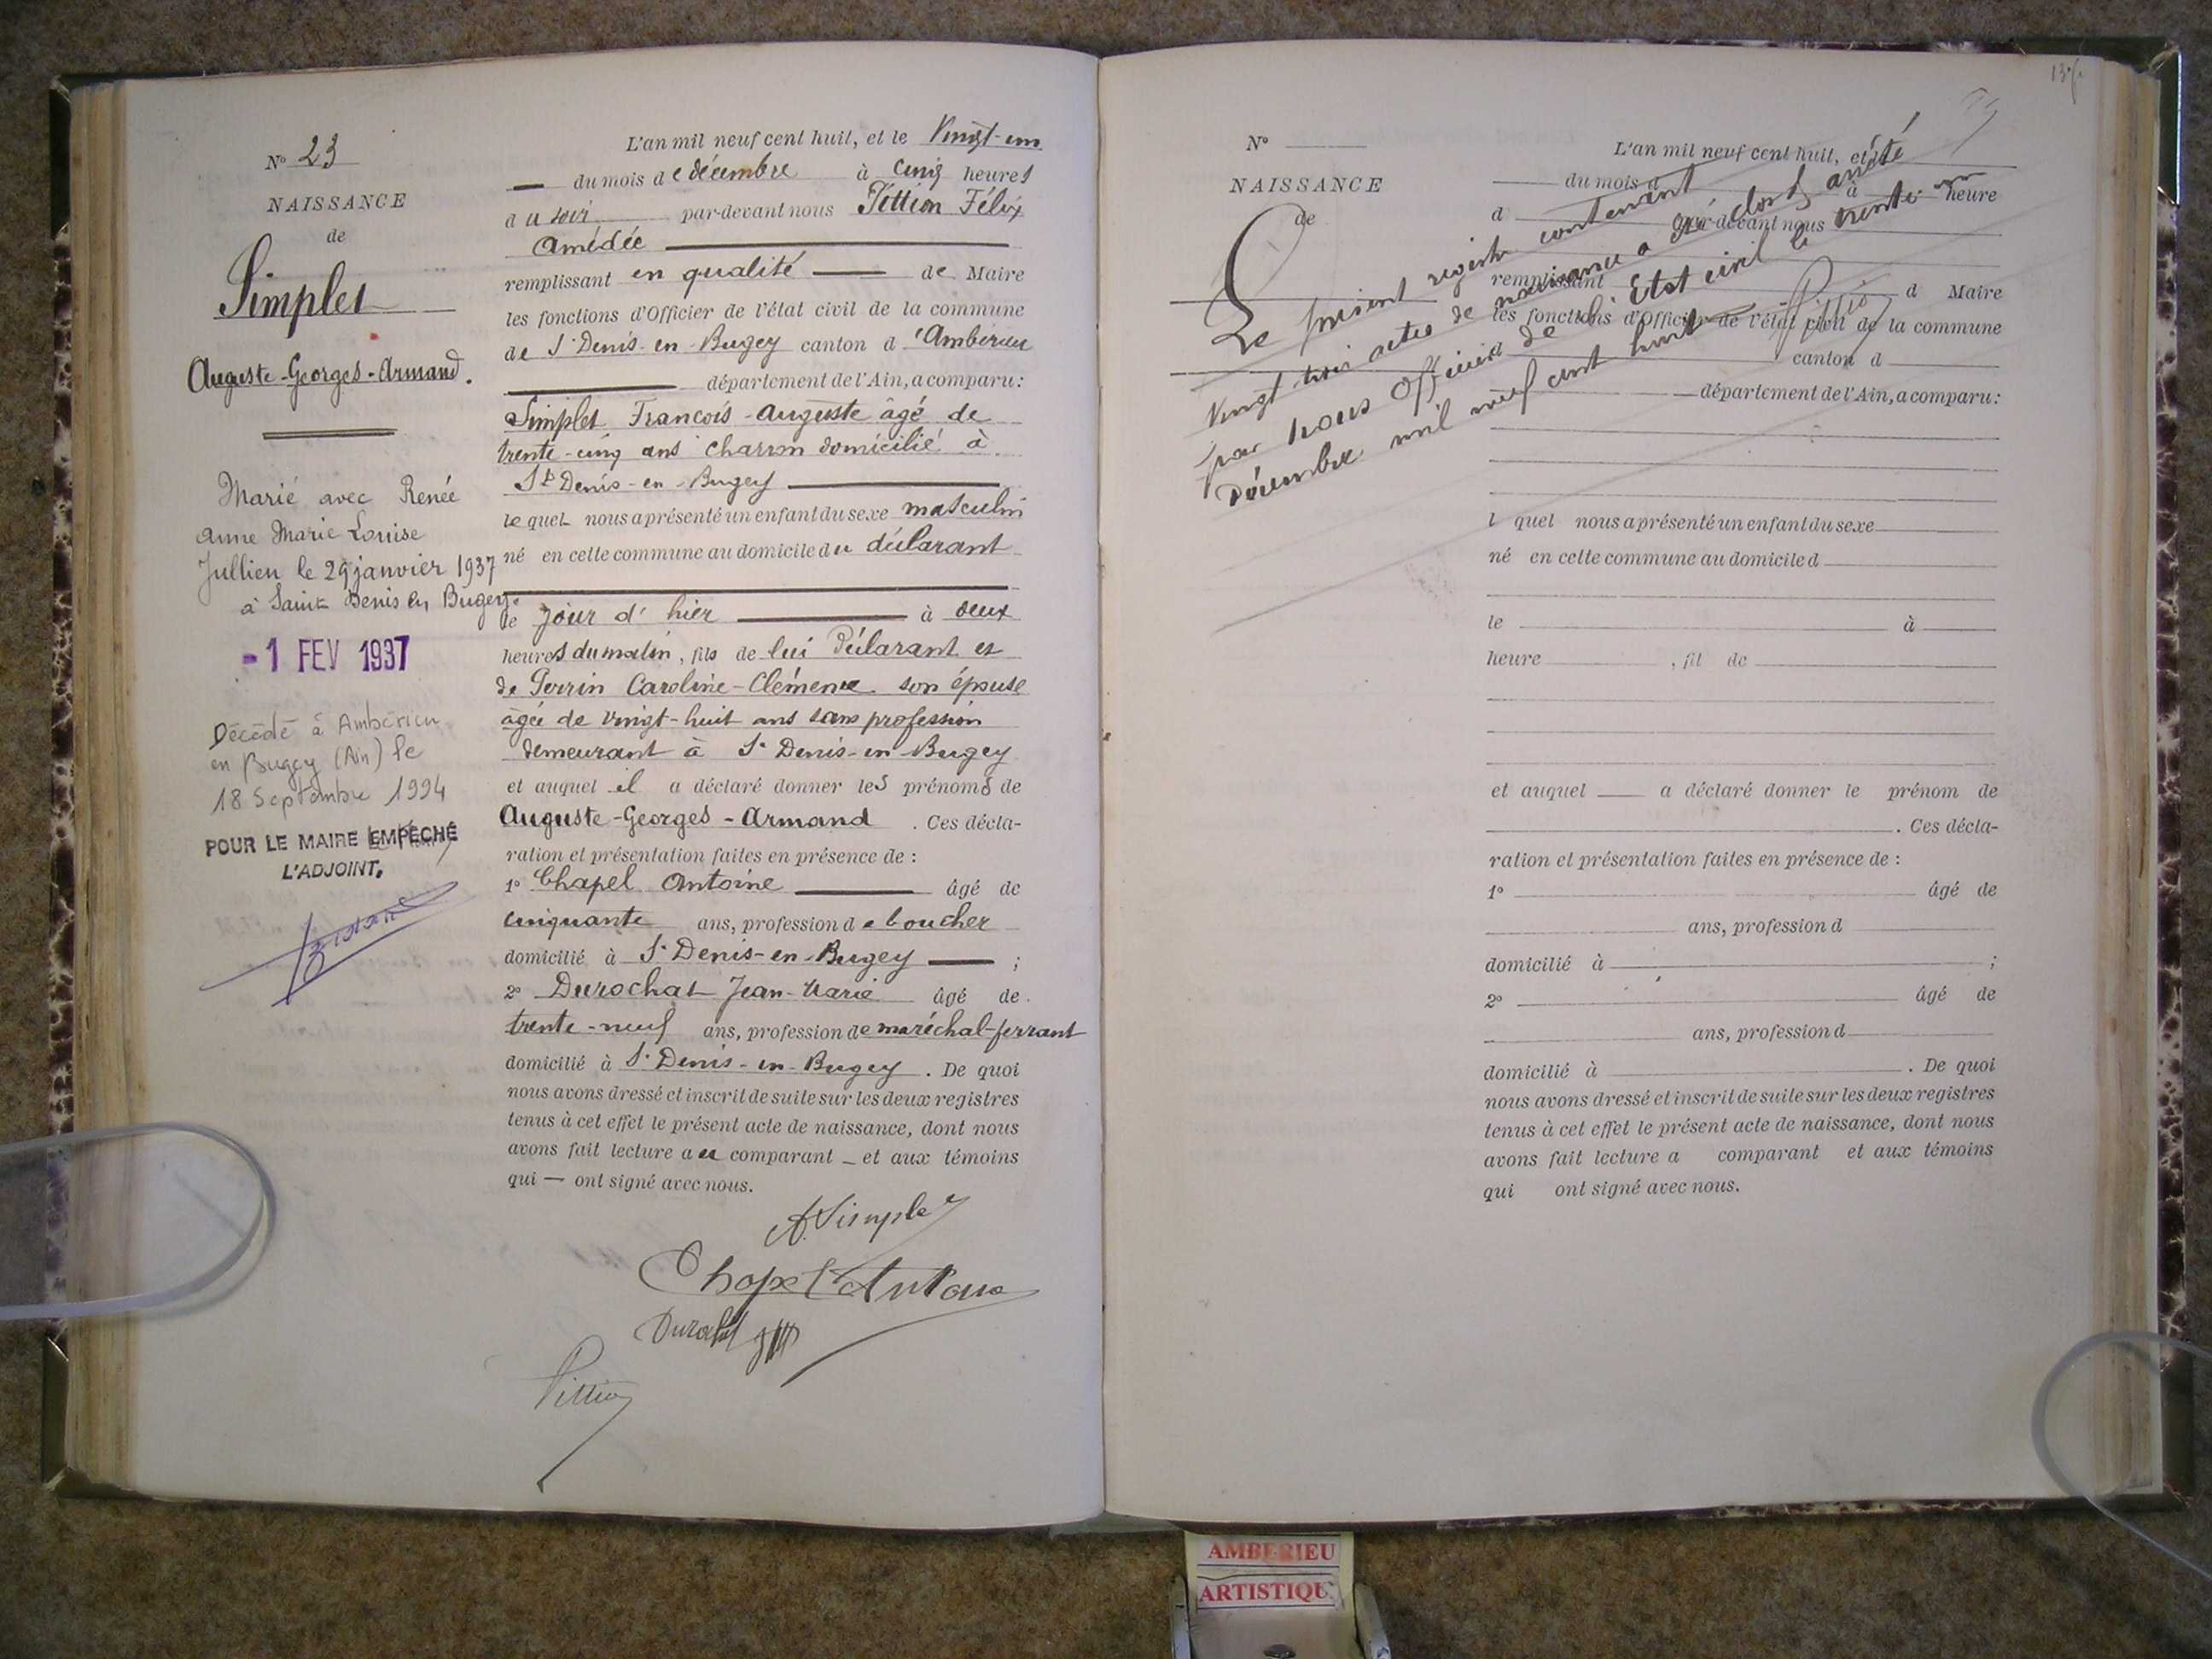 N° 23
NAISSANCE
de
Simplet
Auguste-Georges-Armand.
Marié avec Renée
Anne Marie Louise
Jullien le 29 janvier 1937
à Saint Denis en Bugey.
-1 FEV 1937
Décédé à Ambérieu
en Bugey (Ain) le
18 Septembre 1994
POUR LE MAIRE EMPÊCHÉ
L'ADJOINT.
L'an mil neuf cent huit, et le Vingt-un
du mois de décembre à cinq heures
du soir par-devant nous Pittion Félix
Amédée
remplissant en qualité de Maire
les fonctions d'Officier de l'état civil de la commune
de St Denis-en-Bugey canton d'Ambérieu
département de l'Ain, a comparu:
Simplet François-Auguste âgé de
trente-cinq ans charron domicilié à
St Denis-en-Bugey
lequel nous a présenté un enfant du sexe masculin
né en cette commune au domicile du déclarant
le jour d'hier à deux
heures du matin, fils de lui déclarant et
de Perrin Caroline-Clémence son épouse
âgée de vingt-huit ans sans profession
demeurant à St Denis-en-Bugey
et auquel il a déclaré donner les prénoms de
Auguste-Georges-Armand. Ces décla-
ration et présentation faites en présence de :
1° Chapel Antoine âgé de
cinquante ans, profession de boucher
domicilié à St Denis-en-Bugey ;
2° Durochat Jean-Marie âgé de
trente-neuf ans, profession de maréchal-ferrant
domicilié à St Denis-en-Bugey. De quoi
nous avons dressé et inscrit de suite sur les deux registres
tenus à cet effet le présent acte de naissance, dont nous
avons fait lecture au comparant et aux témoins
qui — ont signé avec nous.
A. Simplet
Chapel Antoine
Durochat JM
Pittion
N°
NAISSANCE
de
Le présent registre contenant
vingt trois actes de naissance a été clos et arrêté
par nous Officier de l'Etat civil le trente-un
Décembre mil neuf cent huit
Pittion
L'an mil neuf cent huit, et le
du mois d à heure
d par-devant nous
remplissant d Maire
les fonctions d'Officier de l'état civil de la commune
canton d
département de l'Ain, a comparu:
l quel nous a présenté un enfant du sexe
né en cette commune au domicile d
le à
heure , fil de
et auquel a déclaré donner le prénom de
. Ces décla-
ration et présentation faites en présence de :
1° âgé de
ans, profession d
domicilié à ;
2° âgé de
ans, profession d
domicilié à . De quoi
nous avons dressé et inscrit de suite sur les deux registres
tenus à cet effet le présent acte de naissance, dont nous
avons fait lecture a comparant et aux témoins
qui ont signé avec nous.
AMBERIEU
ARTISTIQUE